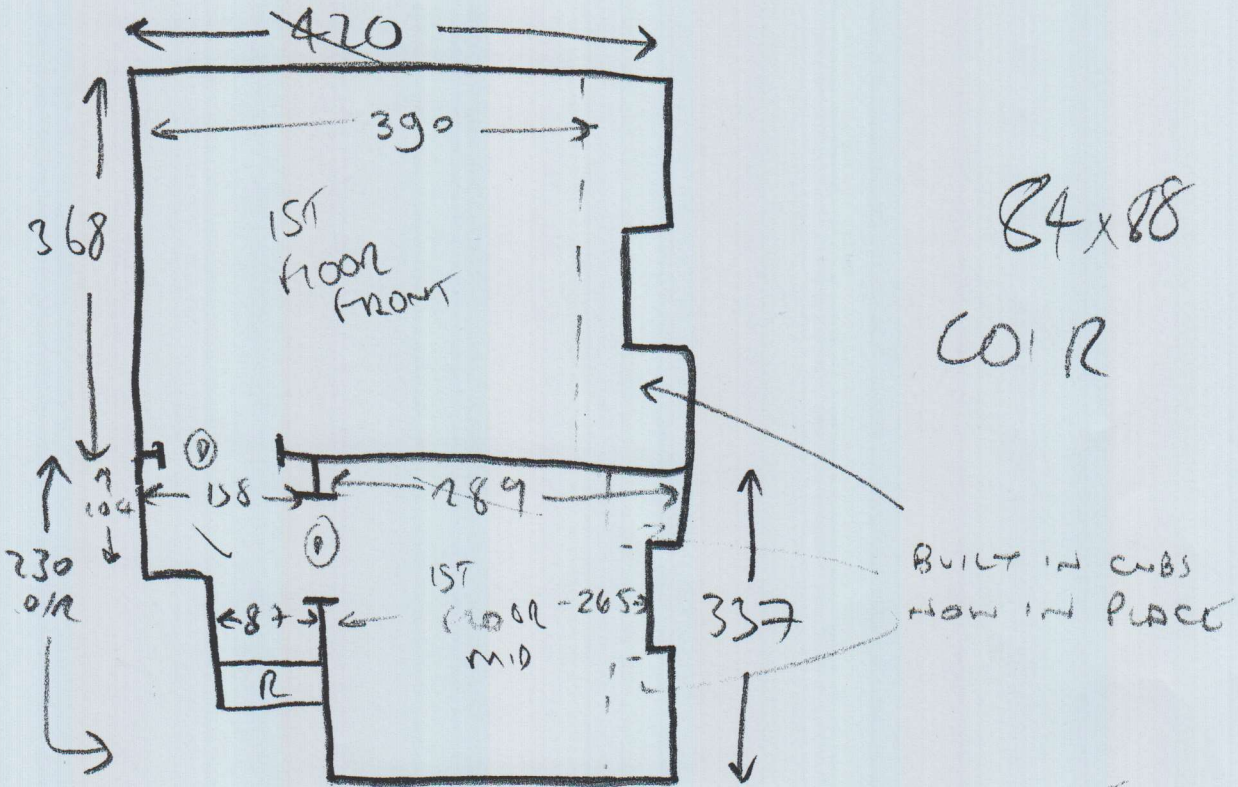 420
390
368
1ST
FLOOR
FRONT
84x88
COIR
104
158
289
230
O/R
87
R
1ST
FLOOR
MID
265
337
BUILT IN CUBS
NOW IN PLACE